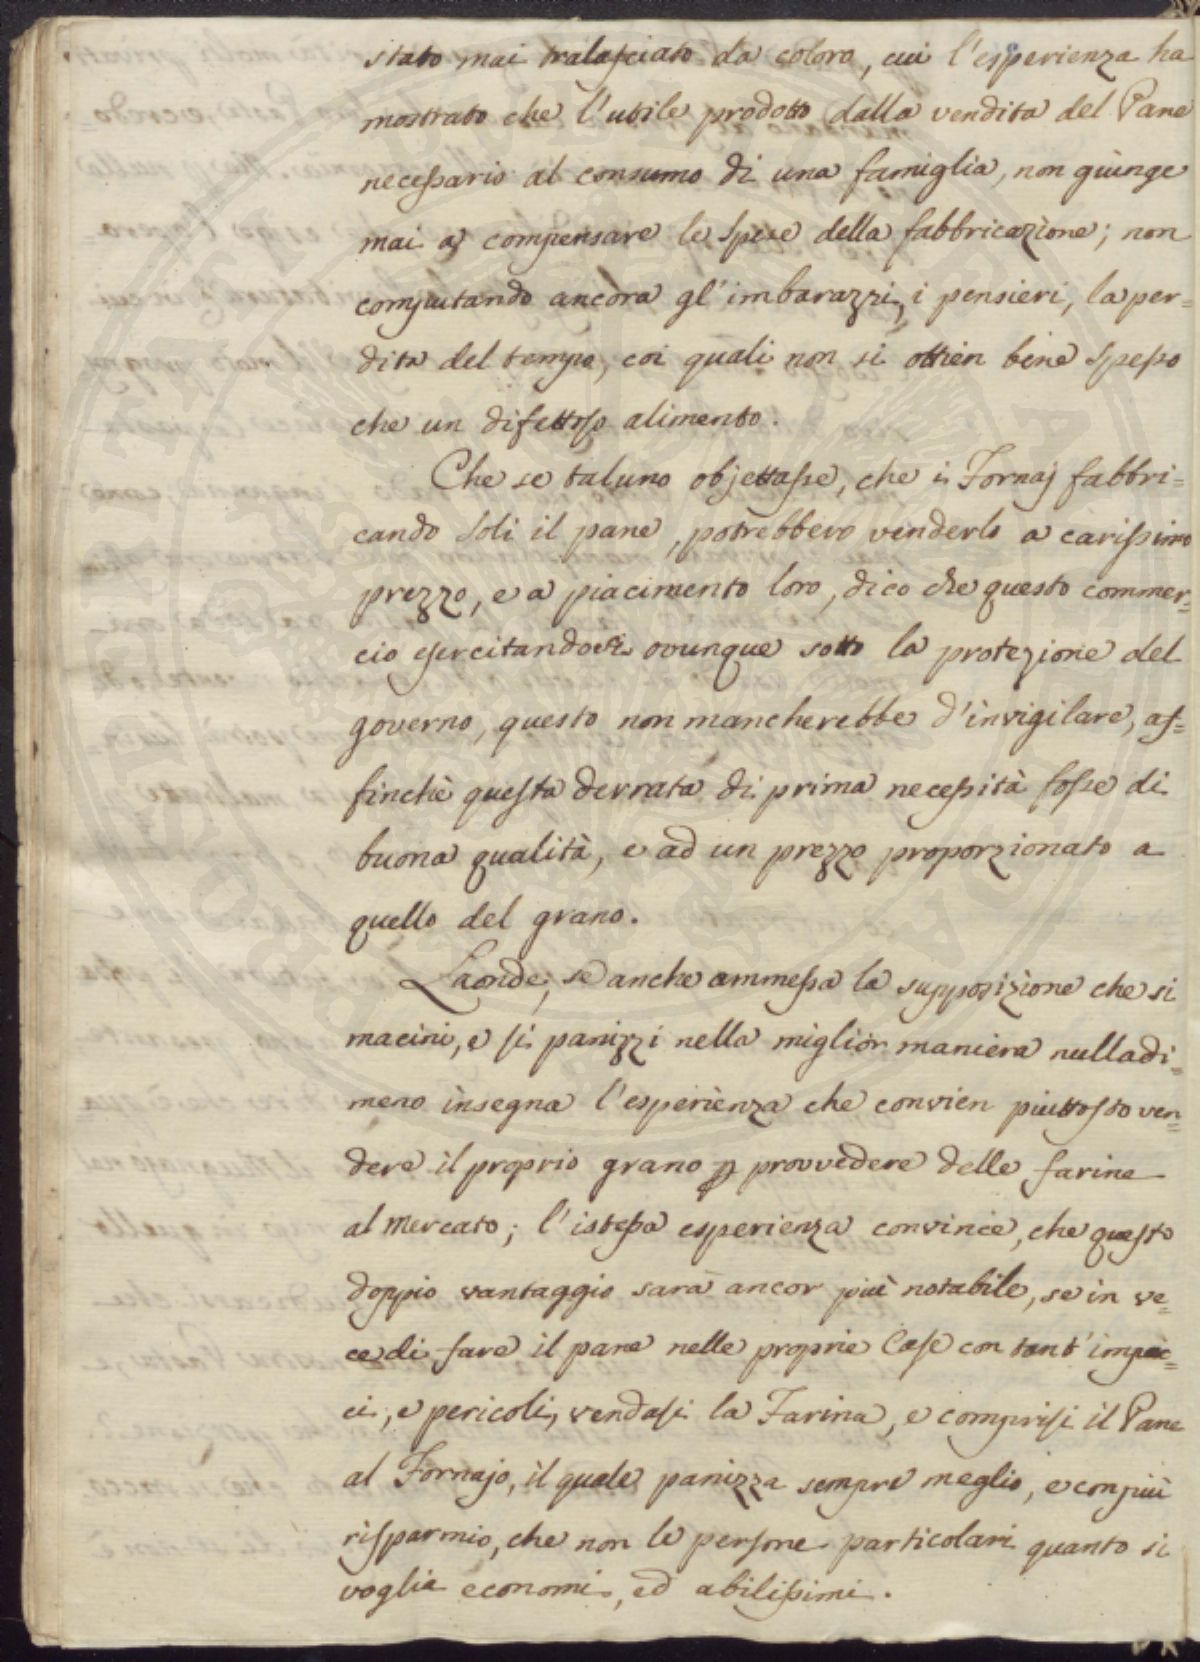 stato mai tralasciato da coloro, cui l'esperienza ha
mostrato che l'utile prodotto dalla vendita del Pane
necessario al consumo di una famiglia, non giunge
mai a compensare le spese della fabbricazione; non
computando ancora gl'imbarazzi, i pensieri, la per=
dita del tempo, coi quali non si ottien bene spesso
che un difettoso alimento.
Che se taluno objettasse, che i Fornaj fabbri=
cando soli il pane, potrebbero venderlo a carissimo
prezzo, e a piacimento loro, dico che questo commer=
cio esercitandosi ovunque sotto la protezione del
governo, questo non mancherebbe d'invigilare, af=
finchè questa derrata di prima necessità fosse di
buona qualità, e ad un prezzo proporzionato a
quello del grano.
Laonde, se anche ammessa la supposizione che si
macini, e si panizzi nella miglior maniera nulladi=
meno insegna l'esperienza che convien piuttosto ven=
dere il proprio grano e provvedere delle farine
al Mercato; l'istessa esperienza convince, che questo
doppio vantaggio sarà ancor più notabile, se in ve=
ce di fare il pane nelle proprie Case con tant'impac=
ci, e pericoli, vendasi la Farina, e comprisi il Pane
al Fornajo, il quale panizza sempre meglio, e con più
risparmio, che non le persone particolari quanto si
voglia economi, ed abilissimi.